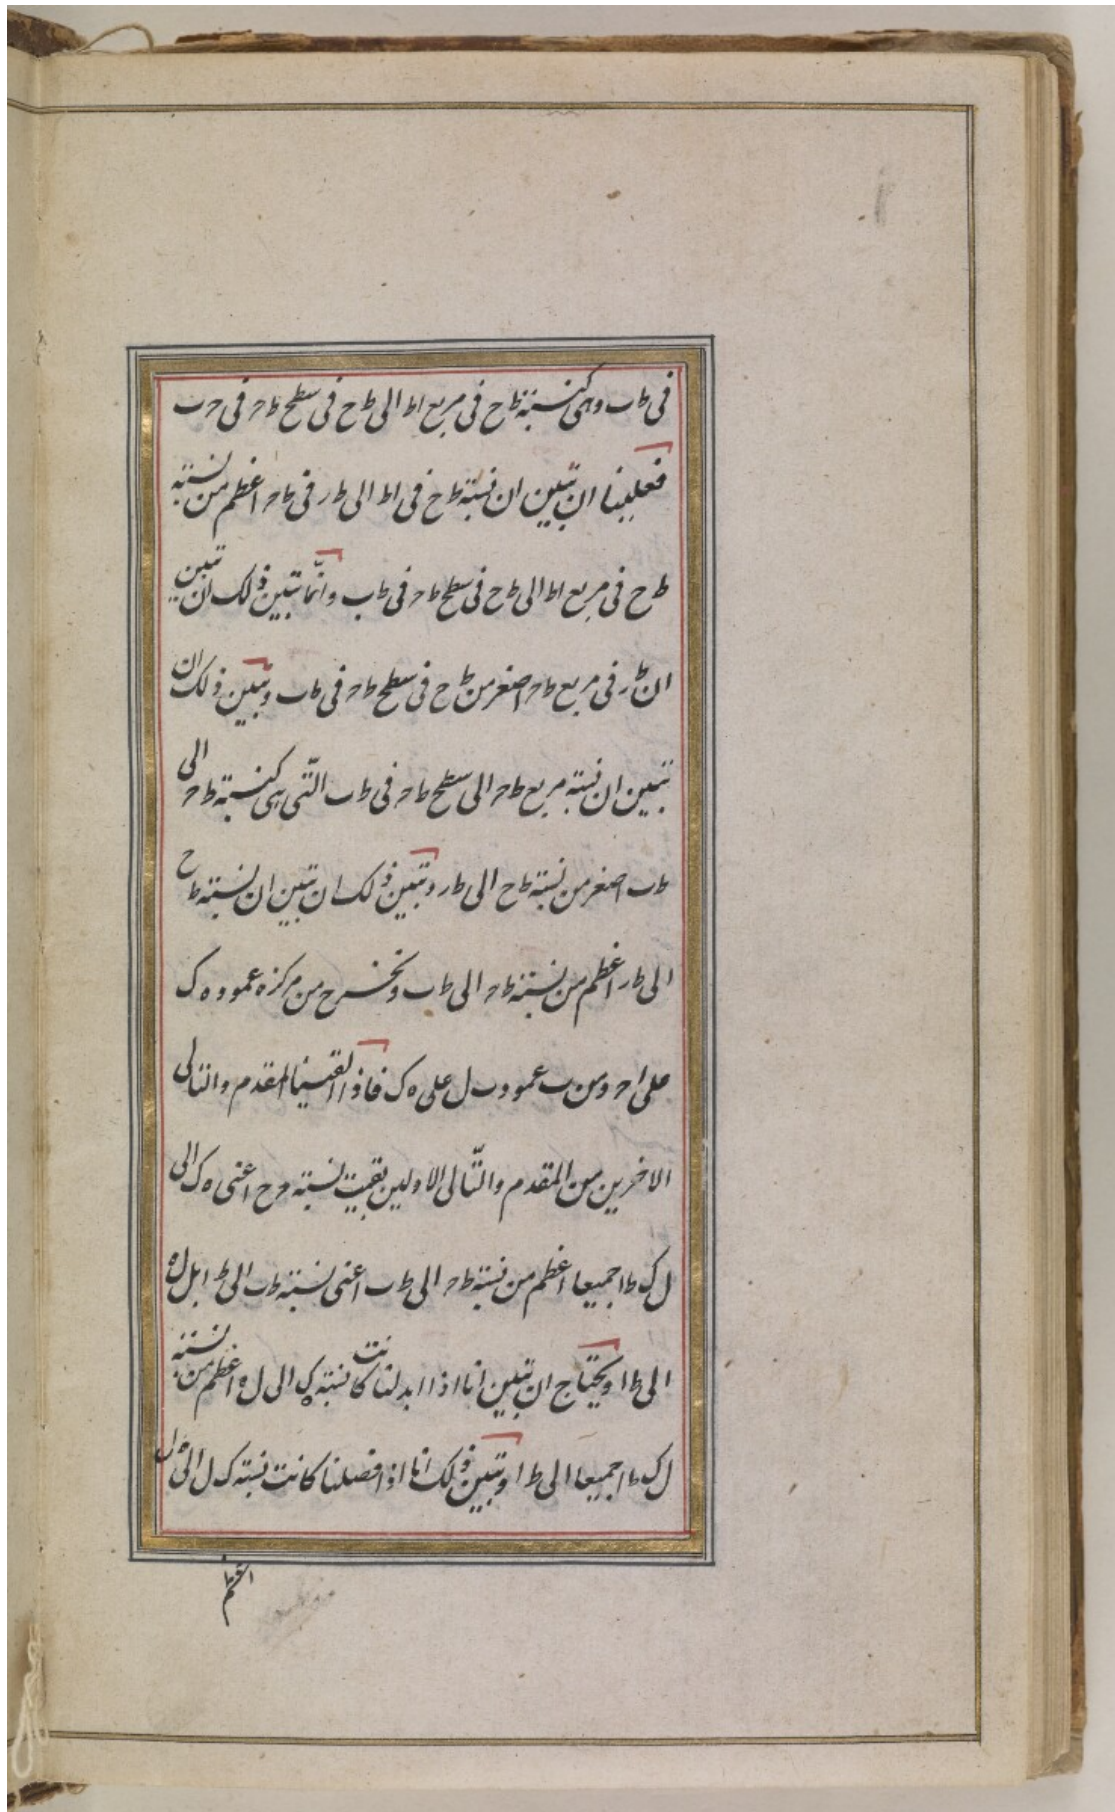 فى طب وهى كنسبة طح فى مربع اط الى طح فى سطح طح فى حب
فعلينا ان نبين ان نسبة طح فى اط الى طر فى طح اعظم من نسبة
طح فى مربع اط الى طح فى سطح طح فى طب وانّما نبين ذلك ان نبين
ان طر فى مربع طح اصغر من طح فى سطح طح فى طب ونبين ذلك ان
نبين ان نسبة مربع طح الى سطح طح فى طب الّتى هى كنسبة طح الى
طب اصغر من نسبة طح الى طر ونبين ذلك ان نبين ان نسبة طح
الى طر اعظم من نسبة طح الى طب ونخرج من مركز ه عمود ه ك
على اح ومن ب عمود ب ل على ه ك فاذا القينا المقدم والتالى
الاخرين من المقدم والتّالى الاولين بقيت نسبة ح ح اعنى ه ك الى
ل ك ط ا جميعا اعظم من نسبة طح الى طب اعنى نسبة طب الى ط ا بل ل ه
الى ط ا ويحتاج ان نبين انا اذا ابدلنا كانت نسبة ه ك الى ل ه اعظم من نسبة
ل ك ط ا جميعا الى ط ا ونبين ذلك انا اذا فصلنا كانت نسبة ك ل الى ه ل
اعظم